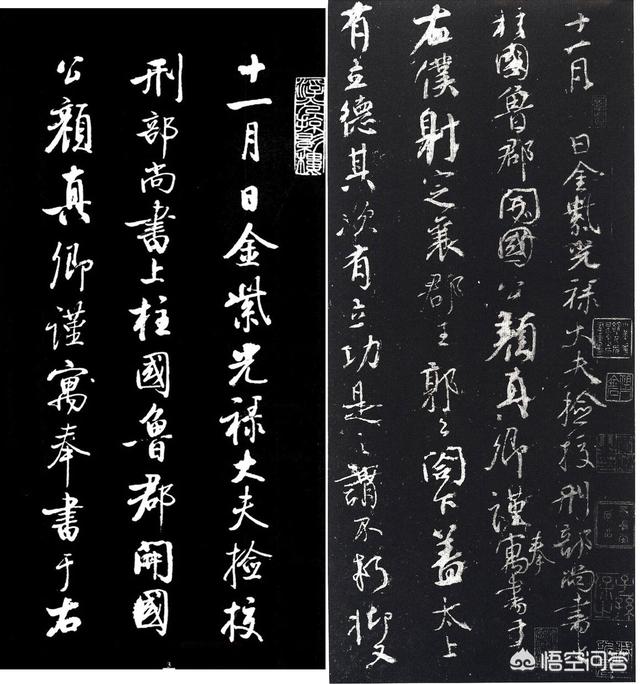 十一月日金紫光禄大夫檢校
刑部尚書上柱國魯郡開國
公顏真卿謹寓奉書于右
十一月 日金紫光禄大夫檢校刑部尚書上
柱國魯郡開國公顏真卿謹寓奉書于
右僕射定襄郡王郭公閣下蓋太上
有立德其次有立功是之謂不朽抑又
悟空问答